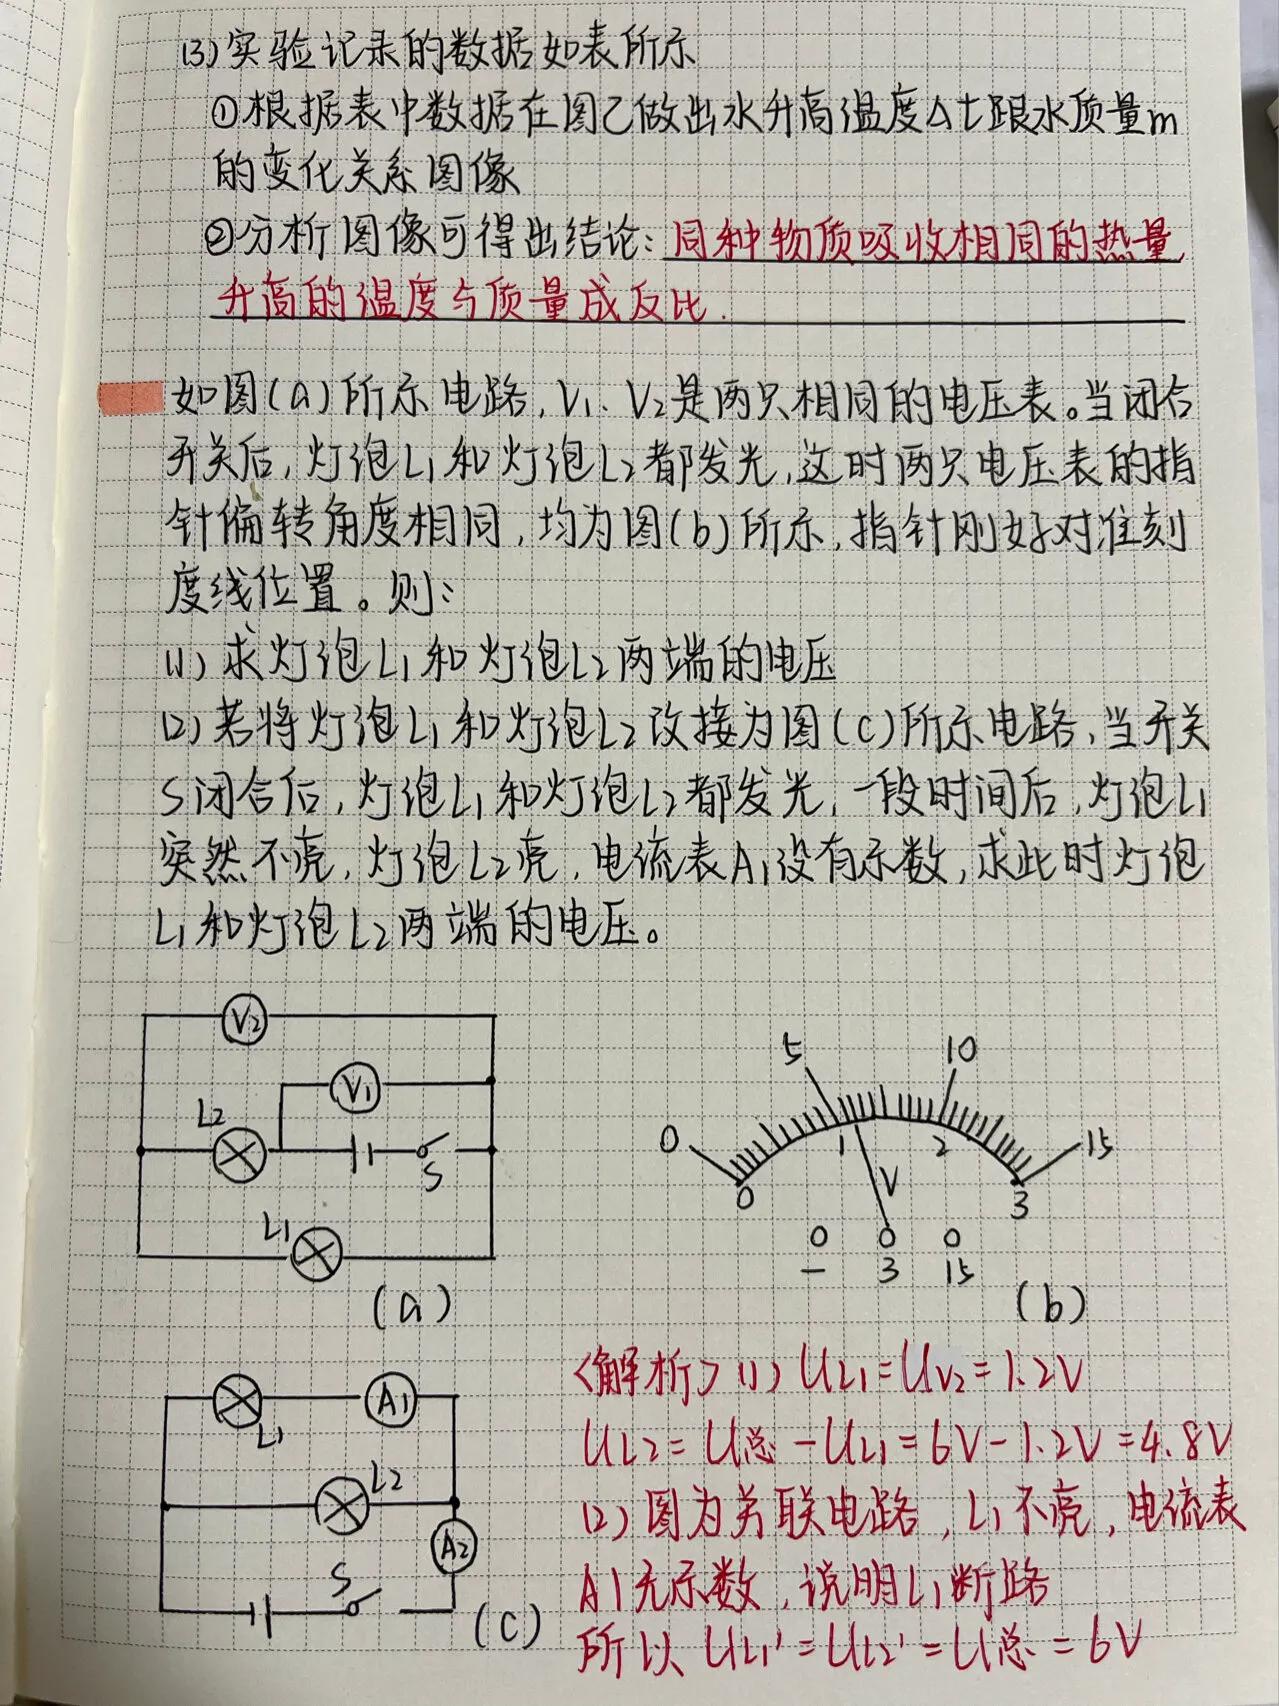 (3)实验记录的数据如表所示
①根据表中数据在图乙做出水升高温度Δt跟水质量m
的变化关系图像
②分析图像可得出结论:同种物质吸收相同的热量,
升高的温度与质量成反比.
如图(a)所示电路,V1、V2是两只相同的电压表。当闭合
开关后,灯泡L1和灯泡L2都发光,这时两只电压表的指
针偏转角度相同,均为图(b)所示,指针刚好对准刻
度线位置。则:
(1)求灯泡L1和灯泡L2两端的电压
(2)若将灯泡L1和灯泡L2改接为图(c)所示电路,当开关
S闭合后,灯泡L1和灯泡L2都发光,一段时间后,灯泡L1
突然不亮,灯泡L2亮,电流表A1没有示数,求此时灯泡
L1和灯泡L2两端的电压。
V2
V1
L2
S
L1
(a)
0 5 10 15
0 1 2 3
V
- 3 15
(b)
L1
A1
L2
A2
S
(c)
<解析>(1)UL1=UV2=1.2V
UL2=U总-UL1=6V-1.2V=4.8V
(2)图为并联电路,L1不亮,电流表
A1无示数,说明L1断路
所以UL1'=UL2'=U总=6V